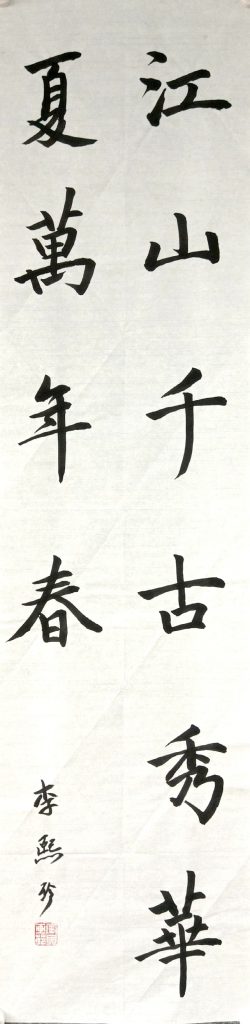 江山千古秀華
夏萬年春
李熙珍